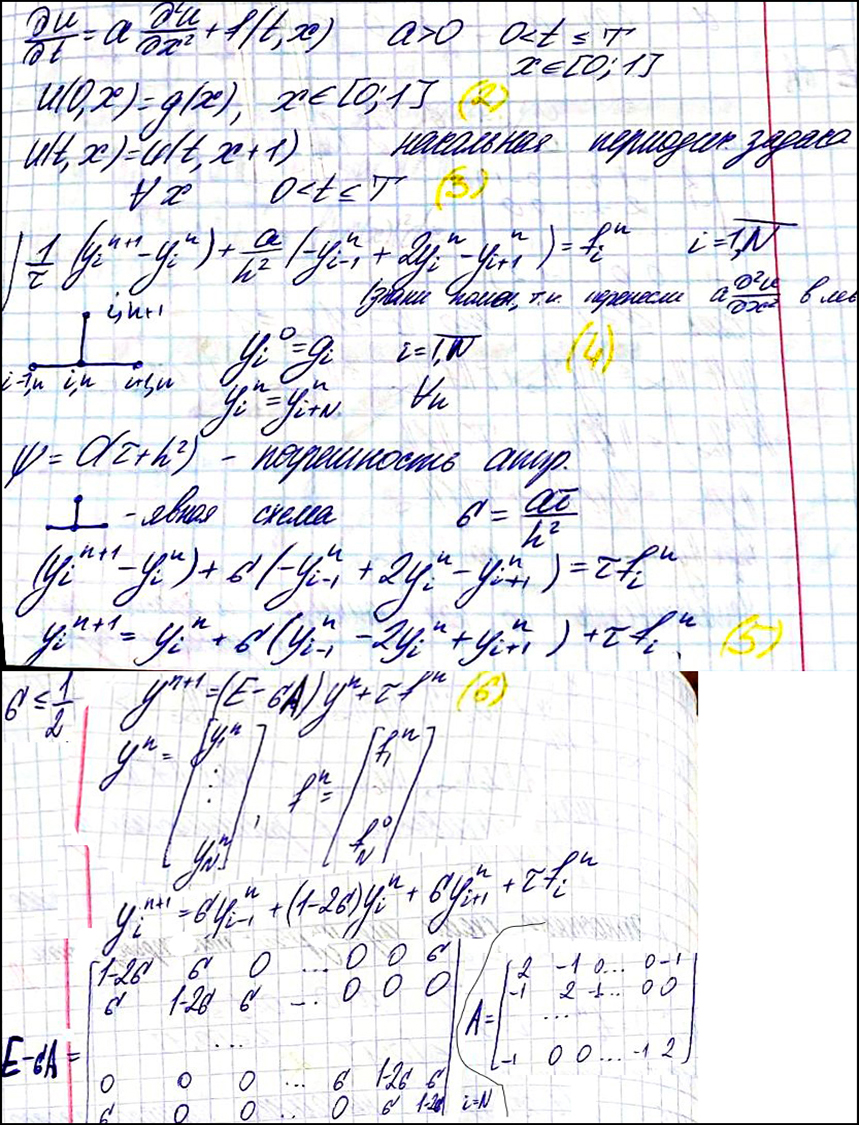 ∂u/∂t = a ∂²u/∂x² + f(t,x)   a>0   0<t≤T
x∈[0;1]
u(0,x)=g(x), x∈[0;1] (2)
u(t,x)=u(t,x+1)   начальная периодич. задача
∀x   0<t≤T (3)
1/τ (y_i^{n+1} - y_i^n) + a/h² (-y_{i-1}^n + 2y_i^n - y_{i+1}^n) = f_i^n   i=1,N
(знаки помен., т.к. перенесли a ∂²u/∂x² в лев
i,n+1
i-1,n   i,n   i+1,n
y_i^0 = g_i   i=1,N (4)
y_i^n = y_{i+N}^n   ∀n
ψ = O(τ+h²) - погрешность аппр.
- явная схема   σ = aτ/h²
(y_i^{n+1} - y_i^n) + σ(-y_{i-1}^n + 2y_i^n - y_{i+1}^n) = τf_i^n
y_i^{n+1} = y_i^n + σ(y_{i-1}^n - 2y_i^n + y_{i+1}^n) + τf_i^n. (5)
σ ≤ 1/2   y^{n+1} = (E-σA)y^n + τf^n (6)
y^n = [y_1^n ⋮ y_N^n], f^n = [f_1^n f_N^0]
y_i^{n+1} = σy_{i-1}^n + (1-2σ)y_i^n + σy_{i+1}^n + τf_i^n
E-σA =
1-2σ σ 0 ... 0 0 σ
σ 1-2σ σ ... 0 0 0
...
0 0 0 ... σ 1-2σ σ
σ 0 0 ... 0 σ 1-2σ   i=N
A =
2 -1 0... 0 -1
-1 2 -1... 0 0
...
-1 0 0 ... -1 2